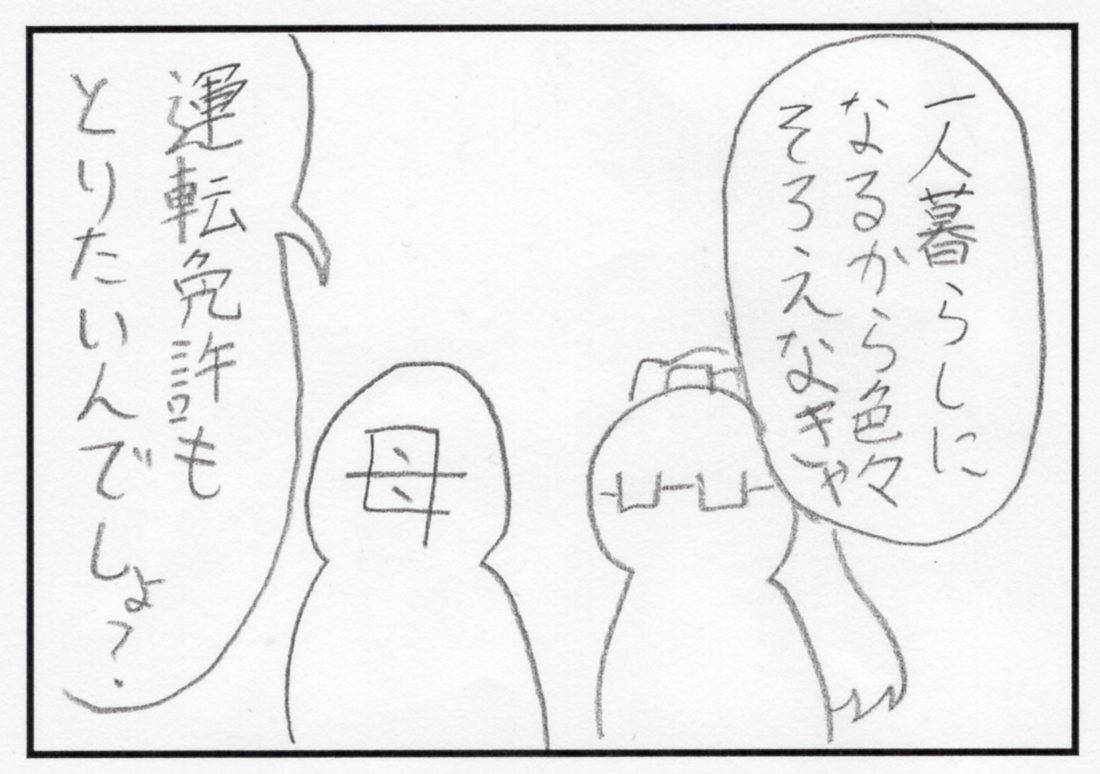 一人暮らしに
なるから色々
そろえなきゃ
母
運転免許も
とりたいんでしょ？